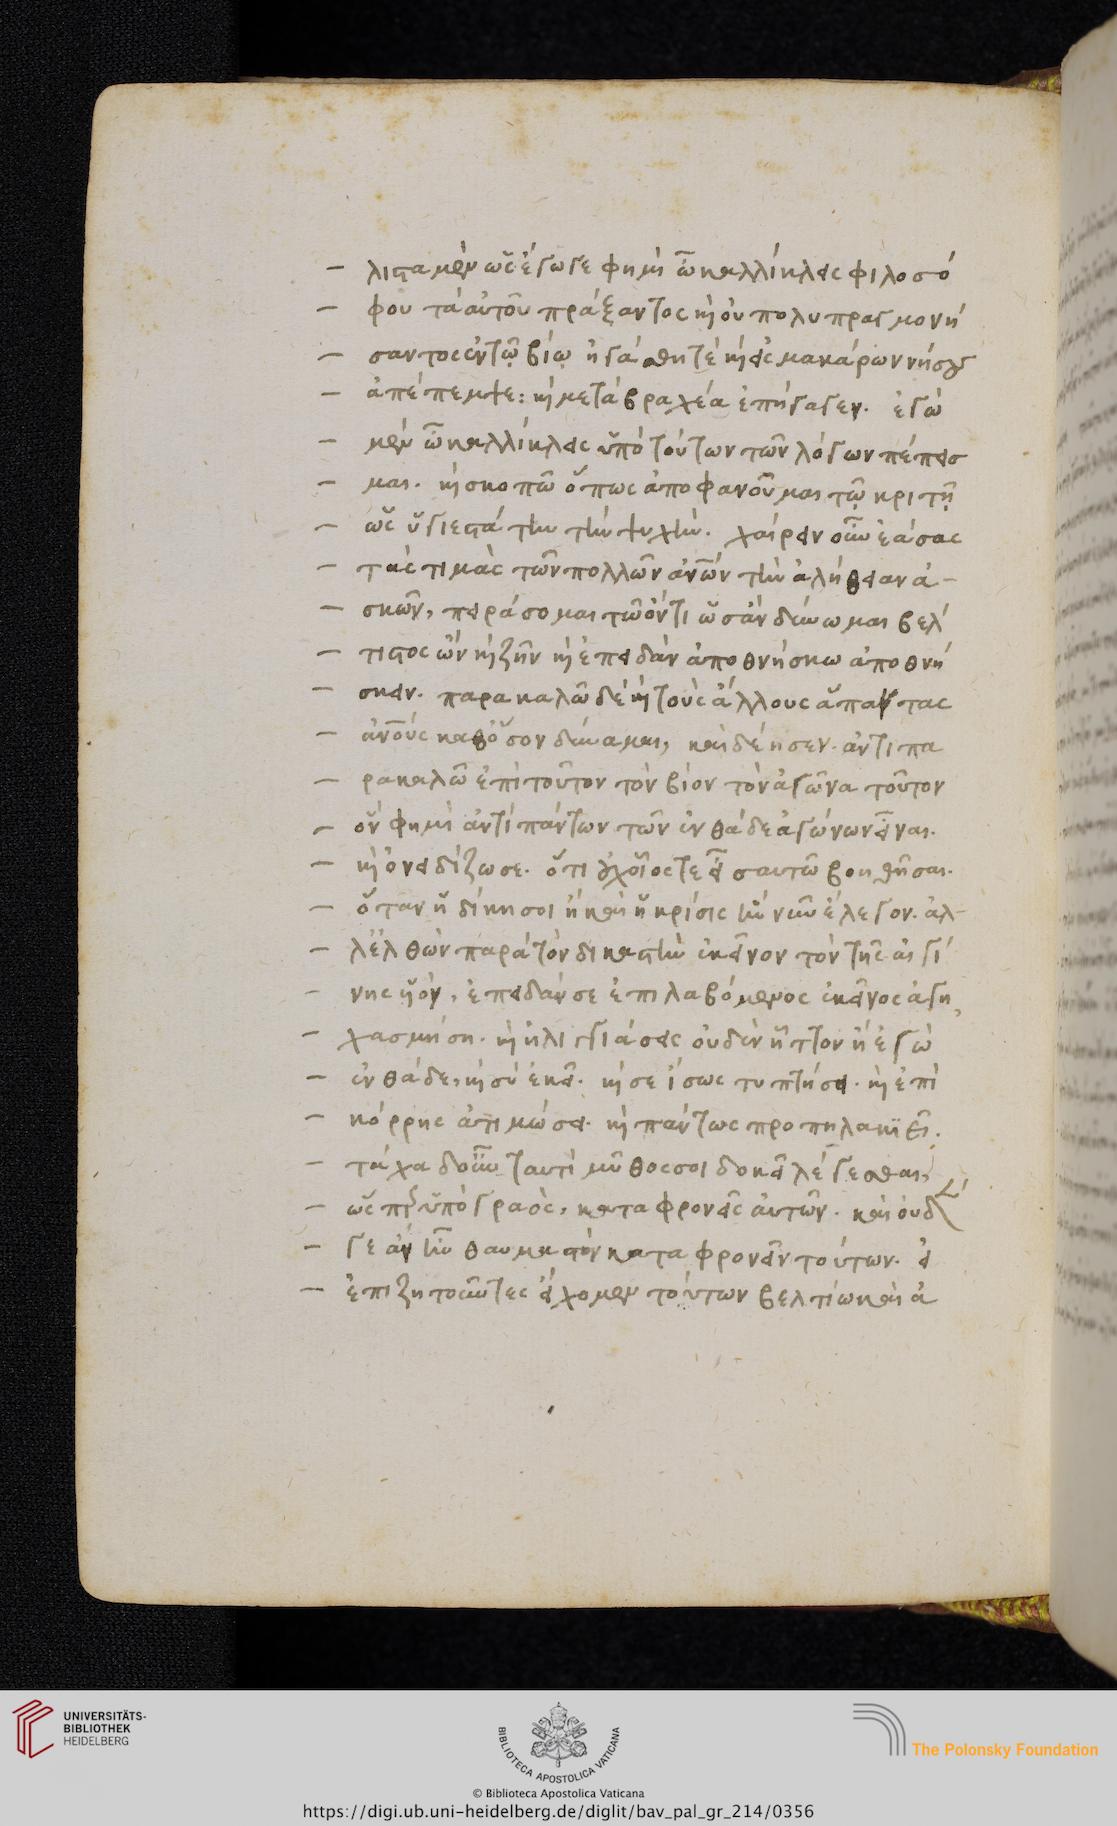 – λιστα μὲν ὥς ἔγωγε φημὶ ὦ καλλίκλεις φιλοσό
– φου τὰ αὑτοῦ πράξαντος καὶ οὐ πολυπραγμονή
– σαντος ἐν τῷ βίῳ ἠγάσθη τὲ καὶ εἰς μακάρων νήσους
– ἀπέπεμψε: καὶ μετὰ βραχέα ἐπήγαγεν. ἐγὼ
– μὲν ὦ καλλίκλεις ὑπὸ τούτων τῶν λόγων πέπεισ
– μαι. καὶ σκοπῶ ὅπως ἀποφανοῦμαι τῷ κριτῇ
– ὡς ὑγιεστάτην τὴν ψυχήν. χαίρειν οὖν ἐάσας
– τὰς τιμὰς τῶν πολλῶν ἀνῶν τὴν ἀλήθειαν ἀ–
– σκῶν, πειράσομαι τῶ ὄντι ὡς ἂν δύνωμαι βέλ
– τιστος ὢν καὶ ζῆν καὶ ἐπειδὰν ἀποθνήσκω ἀποθνή
– σκειν. παρακαλῶ δὲ καὶ τοὺς ἄλλους ἅπαντας
– ἀνους καθ᾽ ὅσον δύναμαι, καὶ δὲ ἡ σεν. ἀντιπα
– ρακαλῶ ἐπὶ τοῦτον τὸν βίον τὸν ἀγῶνα τοῦτον
– ὅν φημὶ ἀντὶ πάντων τῶν ἐνθάδε ἀγώνων εἶναι.
– καὶ ὀνειδίζω σε. ὅτι οὐχ οἷος τε εἶ σαυτῶ βοηθῆσαι.
– ὅταν ἡ δίκη σοι ἢ καὶ ἡ κρίσις ἣν νῦν ἔλεγον. ἀλ–
– λ᾽ ἐλθὼν παρὰ τὸν δικαστὴν ἐκεῖνον τὸν τῆς αἰγί
– νης ὑὸν, ἐπειδάν σε ἐπιλαβόμενος ἐκεῖνος ἄγη,
– χασμήση. καὶ ἠλιγγιάσεις οὐδὲν ἧττον ἢ ἐγὼ
– ἐνθάδε, καὶ σὺ ἐκεῖ. καὶ σε ἴσως τυπτήσει. καὶ ἐπὶ
– κόρρης ἀτιμώσει. καὶ πάντως προπηλακιεῖ.
– τάχα δ᾽ οὖν ταυτὶ μῦθος σοι δοκεῖ λέγεσθαι,
– ὥσπερ ὑπὸ γραὸς, καταφρονεῖς αὐτῶν. καὶ οὐδέν
– γε ἂν ἦν θαυμαστὸν καταφρονεῖν τούτων. εἰ
– ἐπιζητοῦντες εἴχομεν τούτων βελτίω καὶ ἀ
UNIVERSITÄTS-
BIBLIOTHEK
HEIDELBERG
BIBLIOTECA APOSTOLICA VATICANA
The Polonsky Foundation
© Biblioteca Apostolica Vaticana
https://digi.ub.uni-heidelberg.de/diglit/bav_pal_gr_214/0356